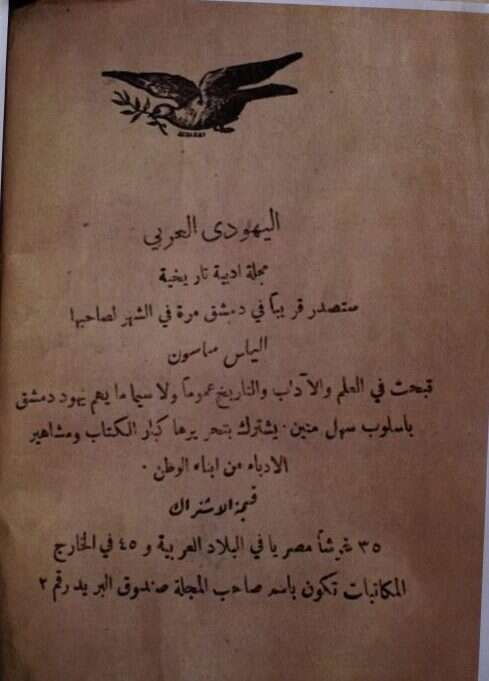 اليهودى العربي
مجلة ادبية تاريخية
ستصدر قريباً في دمشق مرة في الشهر لصاحبها
الياس ساسون
تبحث في العلم والآداب والتاريخ عموماً ولا سيما ما يهم يهود دمشق
باسلوب سهل متين . يشترك بتحريرها كبار الكتاب ومشاهير
الادباء من ابناء الوطن .
قيمة الاشتراك
٣٥ غرشاً مصريا في البلاد العربية و ٤٥ في الخارج
المكاتبات تكون باسم صاحب المجلة صندوق البريد رقم ٢